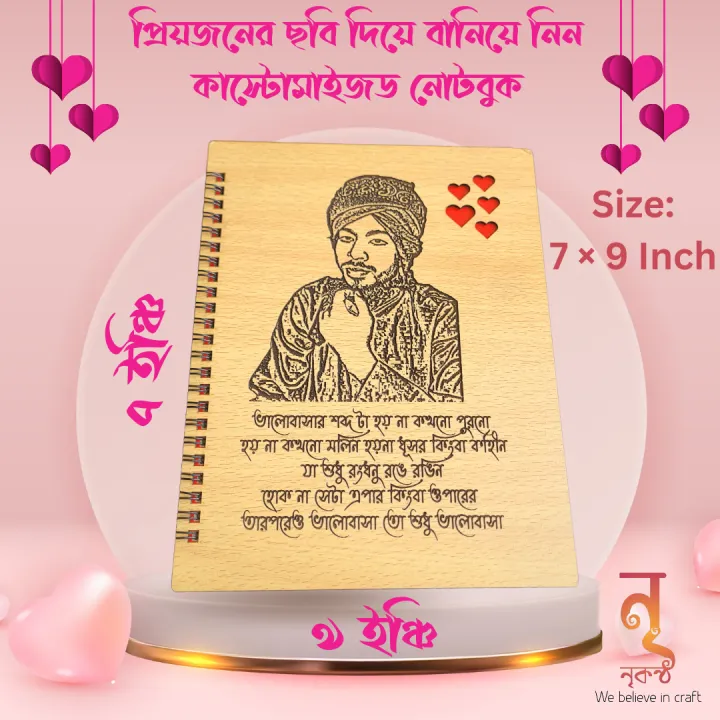 প্রিয়জনের ছবি দিয়ে বানিয়ে নিন
কাস্টোমাইজড নোটবুক
Size:
7 × 9 Inch
৭ ইঞ্চি
ভালোবাসার শব্দ টা হয় না কখনো পুরনো
হয় না কখনো মলিন হয়না ধূসর কিংবা বর্ণহীন
যা শুধু রংধনু রঙে রঙিন
হোক না সেটা এপার কিংবা ওপারের
তারপরেও ভালোবাসা তো শুধু ভালোবাসা
৯ ইঞ্চি
নৃ
নৃকন্ঠ
We believe in craft